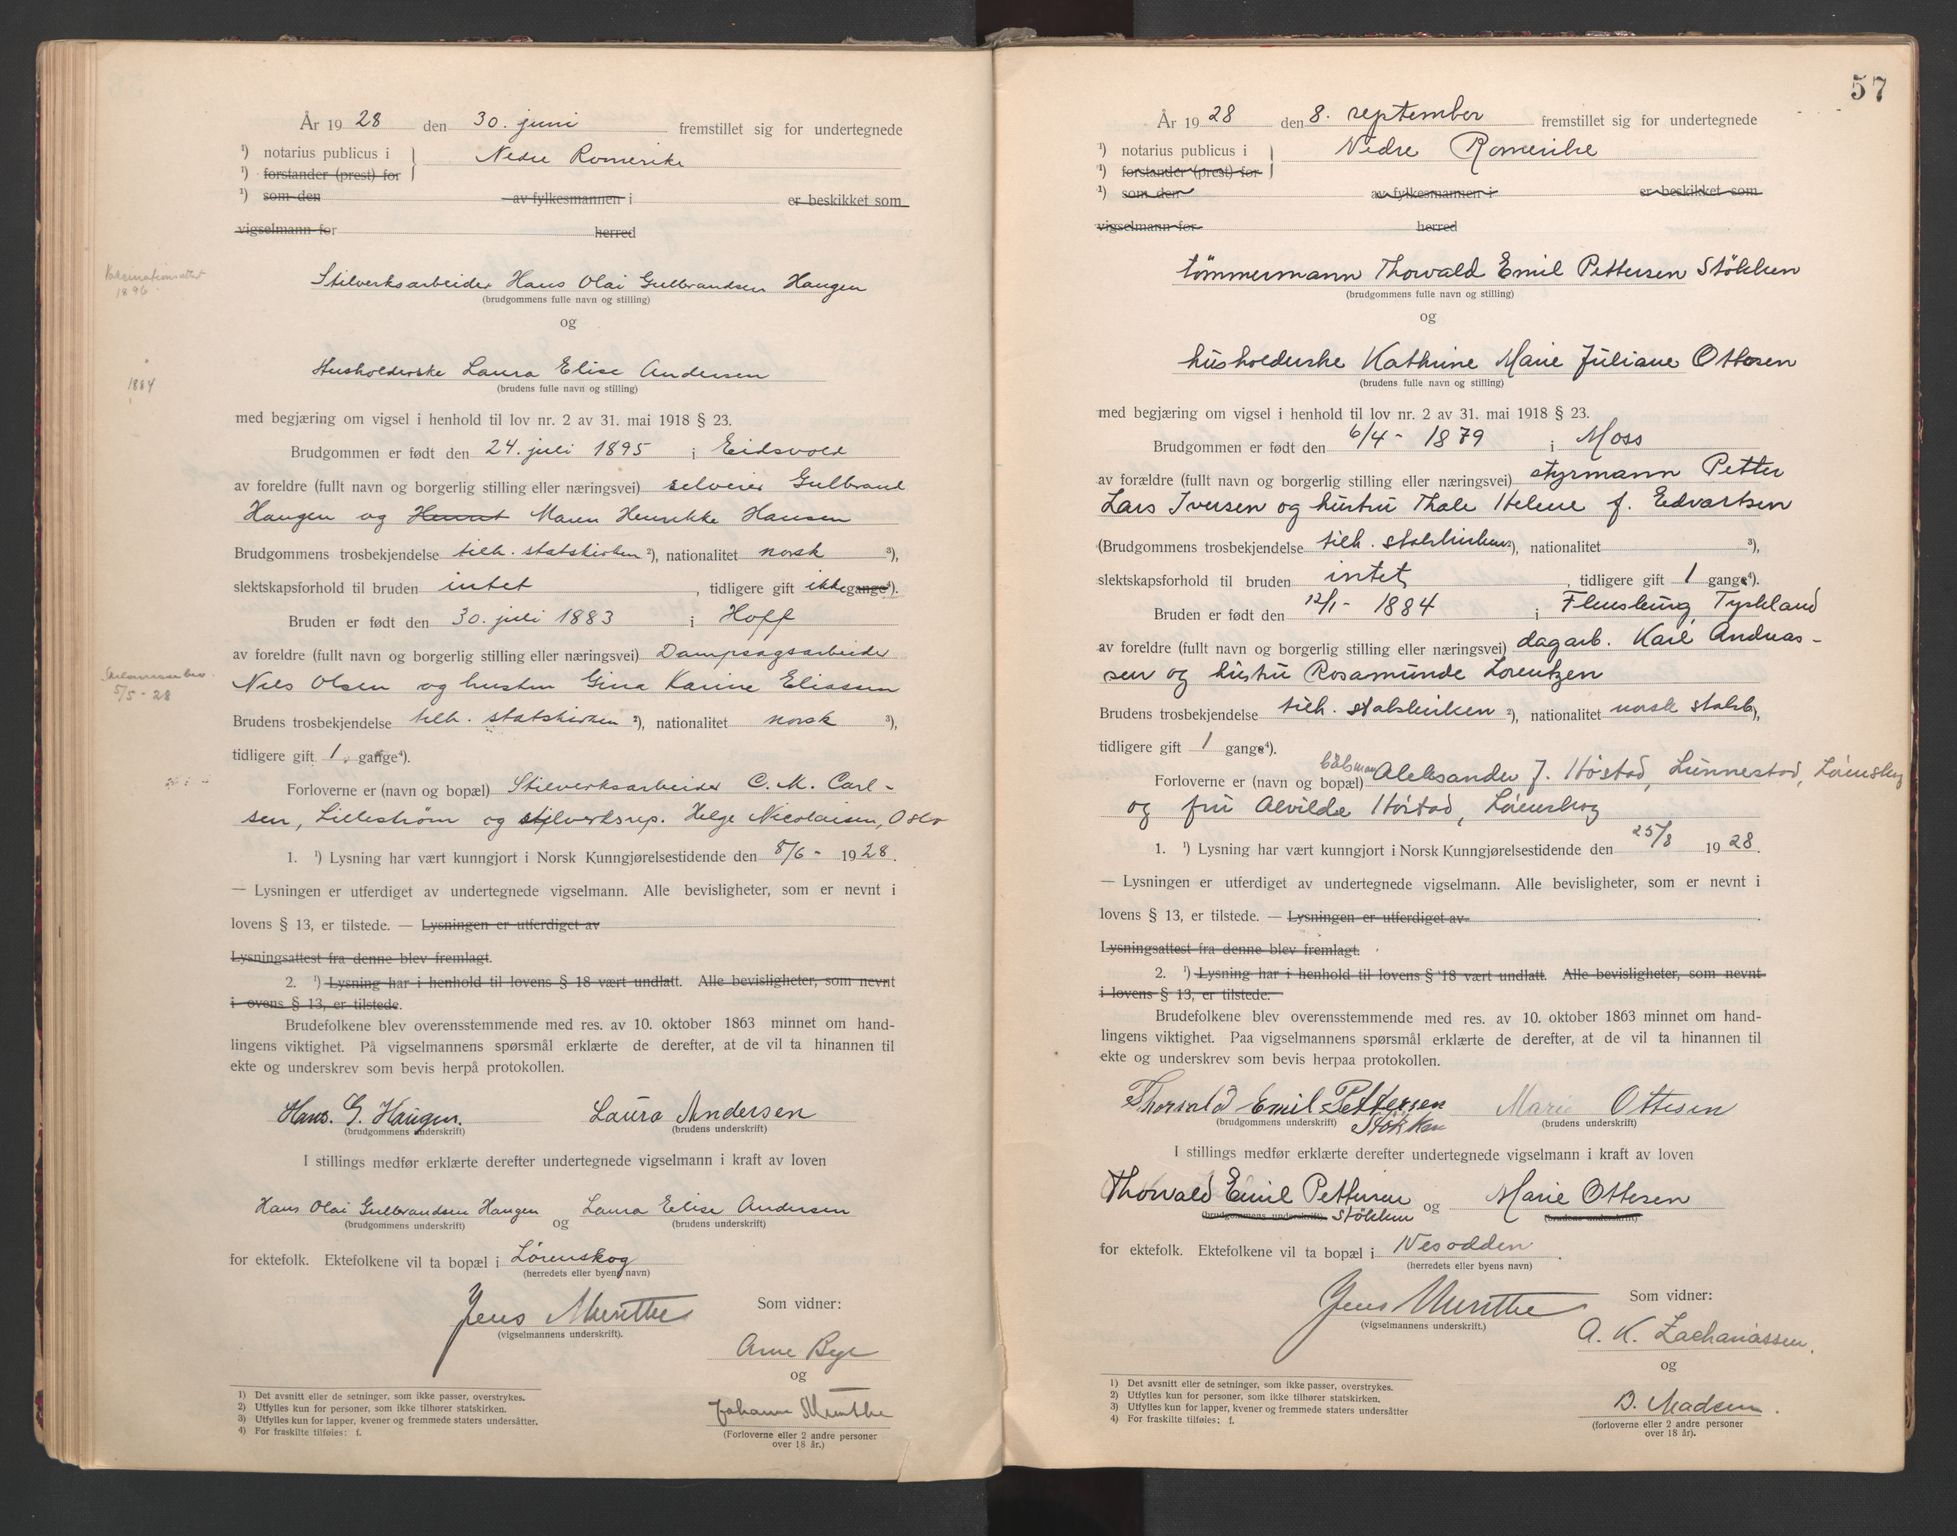 År 1928 den 30. juni fremstillet sig for undertegnede
¹) notarius publicus i } Nedre Romerike
¹) forstander (prest) for
¹) som den av fylkesmannen i er beskikket som
vigselmann for herred
Vaksinationsattest
1896
Stilverksarbeider Hans Olai Gulbrandsen Haugen
(brudgommens fulle navn og stilling)
og
1884
Husholderske Laura Elise Andersen
(brudens fulle navn og stilling)
med begjæring om vigsel i henhold til lov nr. 2 av 31. mai 1918 § 23.
Brudgommen er født den 24. juli 1895 i Eidsvold
av foreldre (fullt navn og borgerlig stilling eller næringsvei) selveier Gulbrand
Haugen og Maren Henrikke Hansen
Brudgommens trosbekjendelse tilh. statskirken ²), nationalitet norsk ³),
slektskapsforhold til bruden intet, tidligere gift ikke gange⁴).
Bruden er født den 30. juli 1883 i Hoff
av foreldre (fullt navn og borgerlig stilling eller næringsvei) Dampsagsarbeider
Niels Olsen og hustru Gina Karine Eliassen
5/5-28
Brudens trosbekjendelse tilh. statskirken ²), nationalitet norsk ³),
tidligere gift 1 gange⁴).
Forloverne er (navn og bopæl) Stilverksarbeider C. M. Carl-
sen, Lillestrøm og stilverksrep. Helge Nicolaisen, Oslo
1. ¹) Lysning har vært kunngjort i Norsk Kunngjørelsestidende den 8/6- 1928.
— Lysningen er utferdiget av undertegnede vigselmann. Alle bevisligheter, som er nevnt i
lovens § 13, er tilstede. — Lysningen er utferdiget av
Lysningsattest fra denne blev fremlagt.
2. ¹) Lysning har i henhold til lovens § 18 vært undlatt. Alle bevisligheter, som nevnt
i ovens § 13, er tilstede.
Brudefolkene blev overensstemmende med res. av 10. oktober 1863 minnet om hand-
lingens viktighet. På vigselmannens spørsmål erklærte de derefter, at de vil ta hinannen til
ekte og underskrev som bevis herpå protokollen.
Hans. G. Haugen. Laura Andersen
(brudgommens underskrift) (brudens underskrift)
I stillings medfør erklærte derefter undertegnede vigselmann i kraft av loven
Hans Olai Gulbrandsen Haugen og Laura Elise Andersen
(brudgommens underskrift) (brudens underskrift)
for ektefolk. Ektefolkene vil ta bopæl i Lørenskog
(herredets eller byens navn)
Jens Munthe
(vigselmannens underskrift).
Som vidner:
Arne Bye
og
Johanne Munthe
(Forloverne eller 2 andre personer
over 18 år.)
1) Det avsnitt eller de setninger, som ikke passer, overstrykes.
2) Utfylles kun for personer, som ikke tilhører statskirken.
3) Utfylles kun for lapper, kvener og fremmede staters undersåtter.
4) For fraskilte tilføies: f.
57
År 1928 den 8. september fremstillet sig for undertegnede
¹) notarius publicus i } Nedre Romerike
¹) forstander (prest) for
¹) som den av fylkesmannen i er beskikket som
vigselmann for herred
tømmermann Thorvald Emil Pettersen Stökken
(brudgommens fulle navn og stilling)
og
husholderske Kathrine Marie Juliane Ottesen
(brudens fulle navn og stilling)
med begjæring om vigsel i henhold til lov nr. 2 av 31. mai 1918 § 23.
Brudgommen er født den 6/4- 1879 i Moss
av forældre (fullt navn og borgerlig stilling eller næringsvei) styrmann Petter
Lars Iversen og hustru Thale Helene f. Edvartsen
(Brudgommens trosbekjendelse tilh. statskirken ²), nationalitet ³),
slektskapsforhold til bruden intet, tidligere gift 1 gange⁴).
Bruden er født den 12/1- 1884 i Flensburg, Tyskland
av foreldre (fullt navn og borgerlig stilling eller næringsvei) dagarb. Karl Andreas-
sen og hustru Rosamunde Lorentzen
Brudens trosbekjendelse tilh. statskirken ²), nationalitet norsk statsb.,
tidligere gift 1 gange⁴).
Forloverne er (navn og bopæl) Aleksander J. Høstad, Lunnestad, Lørenskog
og fru Alvilde Høstad, Lørenskog
1. ¹) Lysning har vært kunngjort i Norsk Kunngjørelsestidende den 25/8 1928.
— Lysningen er utferdiget av undertegnede vigselmann. Alle bevisligheter, som er nevnt i
lovens § 13, er tilstede. — Lysningen er utferdiget av
Lysningsattest fra denne blev fremlagt.
2. ¹) Lysning har i henhold til lovens § 18 vært undlatt. Alle bevisligheter, som nevnt
i lovens § 13, er tilstede.
Brudefolkene blev overensstemmende med res. av 10. oktober 1863 minnet om hand-
lingens viktighet. Paa vigselmannens spørsmål erklærte de derefter, at de vil ta hinannen til
ekte og underskrev som bevis herpaa protokollen.
Thorvald Emil Pettersen Marie Ottesen
Stökken
(brudgommens underskrift) (brudens underskrift)
I stillings medfør erklærte derefter undertegnede vigselmann i kraft av loven
Thorvald Emil Pettersen og Marie Ottesen
(brudgommens underskrift) Stökken (brudens underskrift)
for ektefolk. Ektefolkene vil ta bopæl i Nesodden.
(herredets eller byens navn)
Jens Munthe
(vigselmannens underskrift).
Som vidner:
A. K. Zachariassen.
og
B. Madsen.
(forloverne eller 2 andre personer
over 18 år).
1) Det avsnitt eller de setninger, som ikke passer, overstrykes.
2) Utfylles kun for personer, som ikke tilhører statskirken.
3) Utfylles kun for lapper, kvener og fremmede staters undersåtter
4) For fraskilte tilføies: f.